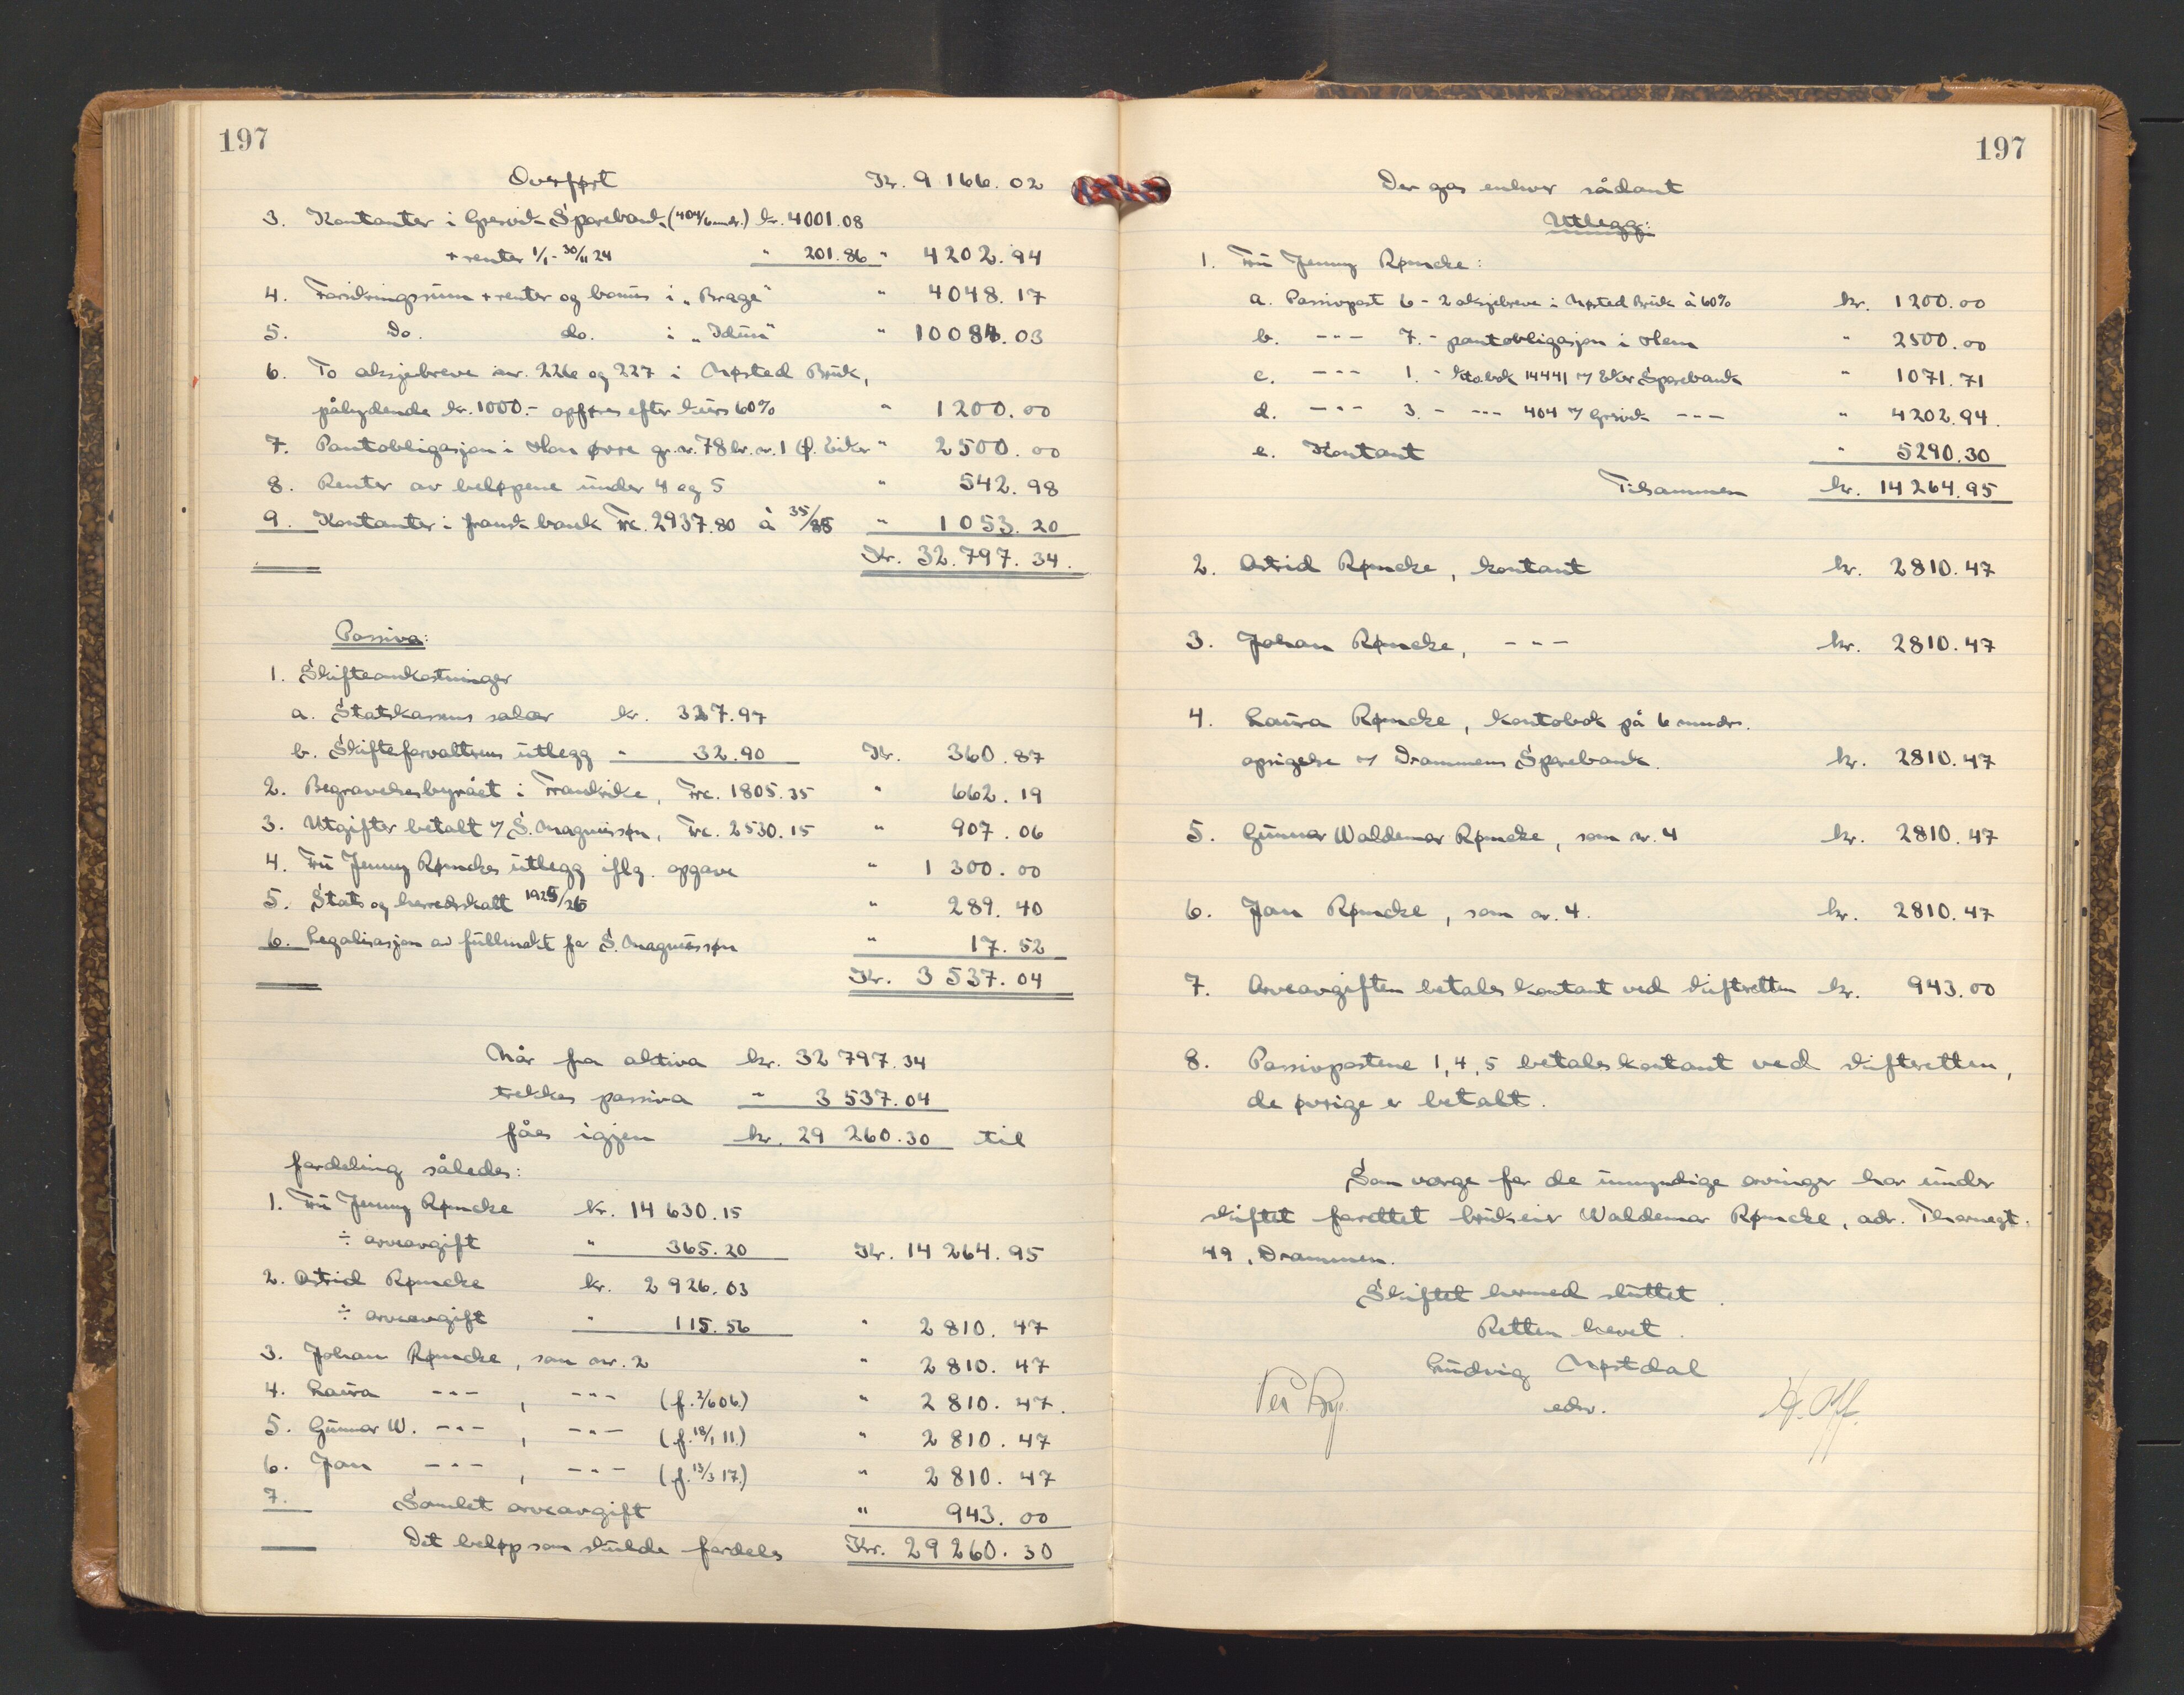 197
Overført Kr. 9 166.02
3. Kontanter i Gresvik Sparebank (404/6 mdr.) kr. 4001.08
+ renter 1/1 - 30/11 24 " 201.86 " 4202.94
4. Forsikringssum + renter og bonus i „Brage" " 4048.17
5. Do. do. i „Idun" " 10084.03
6. To aksjebreve nr. 226 og 227 i Mjøsted Bruk,
pålydende kr. 1000.- opføres efter kurs 60% " 1200.00
7. Pantobligasjon i Hon øvre gr. nr. 78 br. nr. 1 Ø. Eiker " 2500.00
8. Renter av beløpene under 4 og 5 " 542.98
9. Kontanter i fransk bank Frc. 2937.80 à 35/85 " 1053.20
Kr. 32.797.34.
Passiva:
1. Skifteomkostninger
a. Statskassens salær kr. 327.97
b. Skifteforvalterens utlegg " 32.90 Kr. 360.87
2. Begravelsesbyrået i Frankrike, Frc. 1805.35 " 662.19
3. Utgifter betalt v/ S. Magnussøn, Frc. 2530.15 " 907.06
4. Fru Jenny Rømckes utlegg iflg. opgave " 1 300.00
5. Stats og herredsskatt 1925/26 " 289.40
6. Legalisasjon av fullmakt for S. Magnussøn " 17.52
Kr. 3 537.04
Når fra aktiva kr. 32 797.34
trekkes passiva " 3 537.04
fåes igjen kr. 29 260.30 til
fordeling således:
1. Fru Jenny Rømcke kr. 14 630.15
÷ arveavgift " 365.20 Kr. 14 264.95
2. Astrid Rømcke kr. 2 926.03
÷ arveavgift " 115.56 " 2 810.47
3. Johan Rømcke, som nr. 2 " 2 810.47
4. Laura -"- , -"- (f. 2/6 06.) " 2 810.47.
5. Gunnar W. -"- , -"- (f. 18/1 11.) " 2 810.47
6. Jan -"- , -"- (f. 13/3 17.) " 2 810.47
7. Samlet arveavgift " 943.00
Det beløp som skulde fordeles Kr. 29 260.30
197
Der gas enhver sådant
Utlegg:
1. Fru Jenny Rømcke:
a. Passivpost 6 - 2 aksjebreve i Mjøsted Bruk à 60% kr. 1200.00
b. -"- 7. - pantobligasjon i Hon " 2500.00
c. -"- 1. - ktobok 14441 v/ Eker Sparebank " 1071.71
d. -"- 3. - -"- 404 v/ Gresvik -"- " 4202.94.
e. Kontant " 5290.30
Tilsammen kr. 14 264.95
2. Astrid Rømcke, kontant kr. 2810.47
3. Johan Rømcke, -"- kr. 2810.47
4. Laura Rømcke, kontobok på 6 mndrs.
opsigelse v/ Drammens Sparebank. kr. 2810.47
5. Gunnar Waldemar Rømcke, som nr. 4 kr. 2810.47
6. Jan Rømcke, som nr. 4. kr. 2810.47
7. Arveavgiften betales kontant ved skifteretten kr. 943.00
8. Passivpostene 1, 4, 5 betales kontant ved skifteretten,
de øvrige er betalt.
Som verge for de umyndige arvinger har under
skiftet forettet brukseier Waldemar Rømcke, adr. Thornegt.
49, Drammen.
Skiftet hermed sluttet.
Retten hevet.
Ludvig Mjøstdal
edsv.
Per Bry. H. Off.